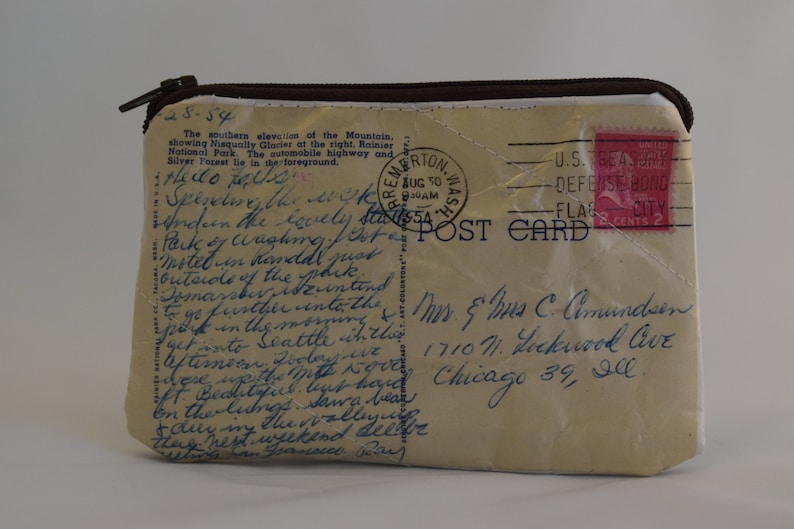 -28-54
The southern elevation of the Mountain,
showing Nisqually Glacier at the right, Rainier
National Park. The automobile highway and
Silver Forest lie in the foreground.
Hello Folks
Spending the week
end in the lovely State
Park of Washing. Got a
motel in Randal just
outside of the park.
Tomarrow we intend
to go further into the
park in the morning &
get into Seattle in the
afternoon. Today we
were up the Mts 1500
ft. Beautiful but hard
on the lungs. Saw a bear
& deer in the valley up
there. Next weekend
San Francisco Ray
RAINIER NATIONAL PARK CO., TACOMA, WASH. MADE IN U.S.A.
GENUINE CURTEICH-CHICAGO "C.T. ART-COLORTONE" POST CARD
BREMERTON, WASH
AUG 30
930AM
1954
U.S.
DEFENSE BOND
FLAG CITY
UNITED
STATES
POSTAGE
2 CENTS 2
POST CARD
Mr. & Mrs C. Amundsen
1710 N. Lockwood Ave
Chicago 39, Ill.